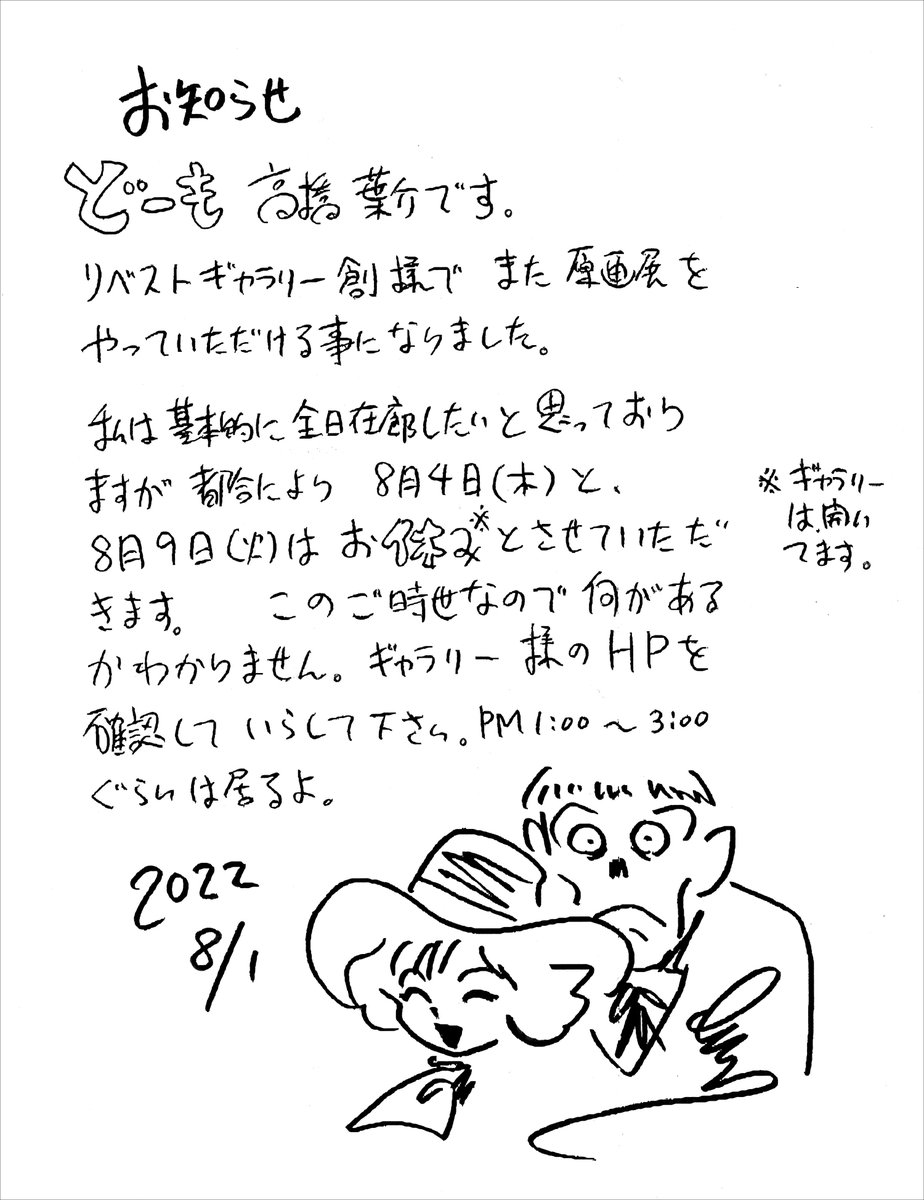 お知らせ
どーも 高橋葉介です。
リベストギャラリー創様で また 原画展を
やっていただける事になりました。
私は基本的に全日在廊したいと思っており
ますが 都合により 8月4日(木)と、
8月9日(火)は お休み※とさせていただ
きます。 このご時世なので 何がある
かわかりません。ギャラリー様のHPを
確認して いらして下さい。PM1:00〜3:00
ぐらいは居るよ。
※ギャラリー
は開い
てます。
2022
8/1